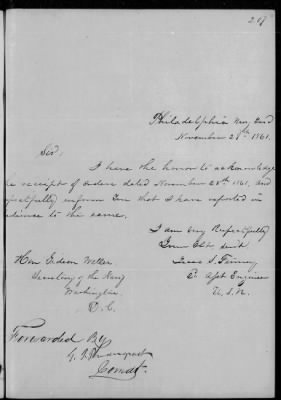 Philadelphia Navy Yard
November 28th 1861.
Sir,
I have the honor to acknowledge
he receipt of Orders dated November 25th 1861, and
pectfully inform You that I have reported in
edience to the same.
I am Very Respectfully
Your Obt. Servt
Hon Gideon Welles
Secretary of the Navy
Washington
D. C.
Asst Engineer
U. S. N.
Forwarded By
Comdt.